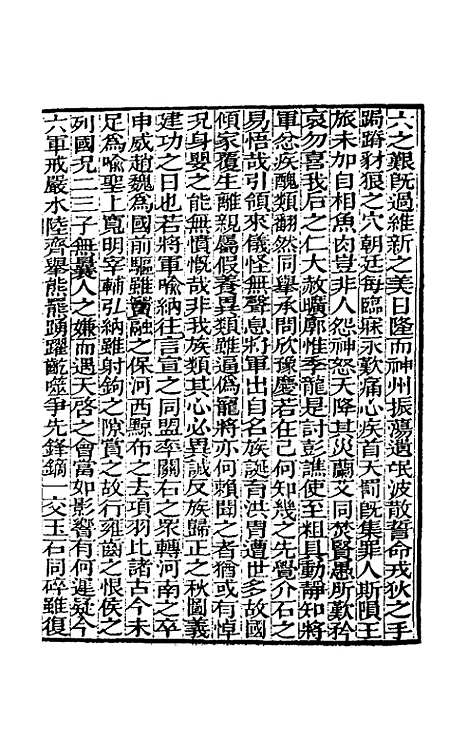 六之艱既過維新之美日隆而神州振蕩遺氓波散誓命戎狄之手
跼蹐豺狼之穴朝廷每臨寐永歎痛心疾首天罰既集罪人斯隕王
旅未加自相魚肉豈非人怨神怒天降其災蘭艾同焚賢愚所歎矜
哀勿喜我后之仁大赦曠廓惟季龍是討彭譙使至粗具動靜知將
軍忿疾醜類翻然同舉承問欣豫慶若在己何知幾之先覺介石之
易悟哉引領來儀怪無聲息將軍出自名族誕育洪胄遭世多故國
傾家覆生離親屬假養異類雖逼僞寵將亦何賴聞之者猶或有悼
況身嬰之能無憤慨哉非我族類其心必異誠反族歸正之秋圖義
建功之日也若將軍喻納往言宣之同盟率關右之衆轉河南之卒
申威趙魏爲國前驅雖竇融之保河西黥布之去項羽比諸古今未
足爲喻聖上寬明宰輔弘納雖射鉤之隙賞之故行雍齒之恨侯之
列國況二三子無曩人之嫌而遇天啓之會當如影響有何遲疑今
六軍戒嚴水陸齊舉熊羆踴躍齕噬爭先鋒鏑一交玉石同碎雖復